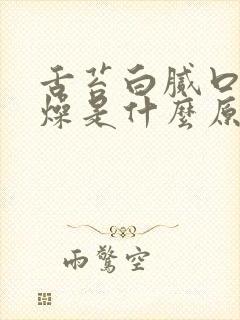 舌苔白腻口
燥是什麼原
雨驚空